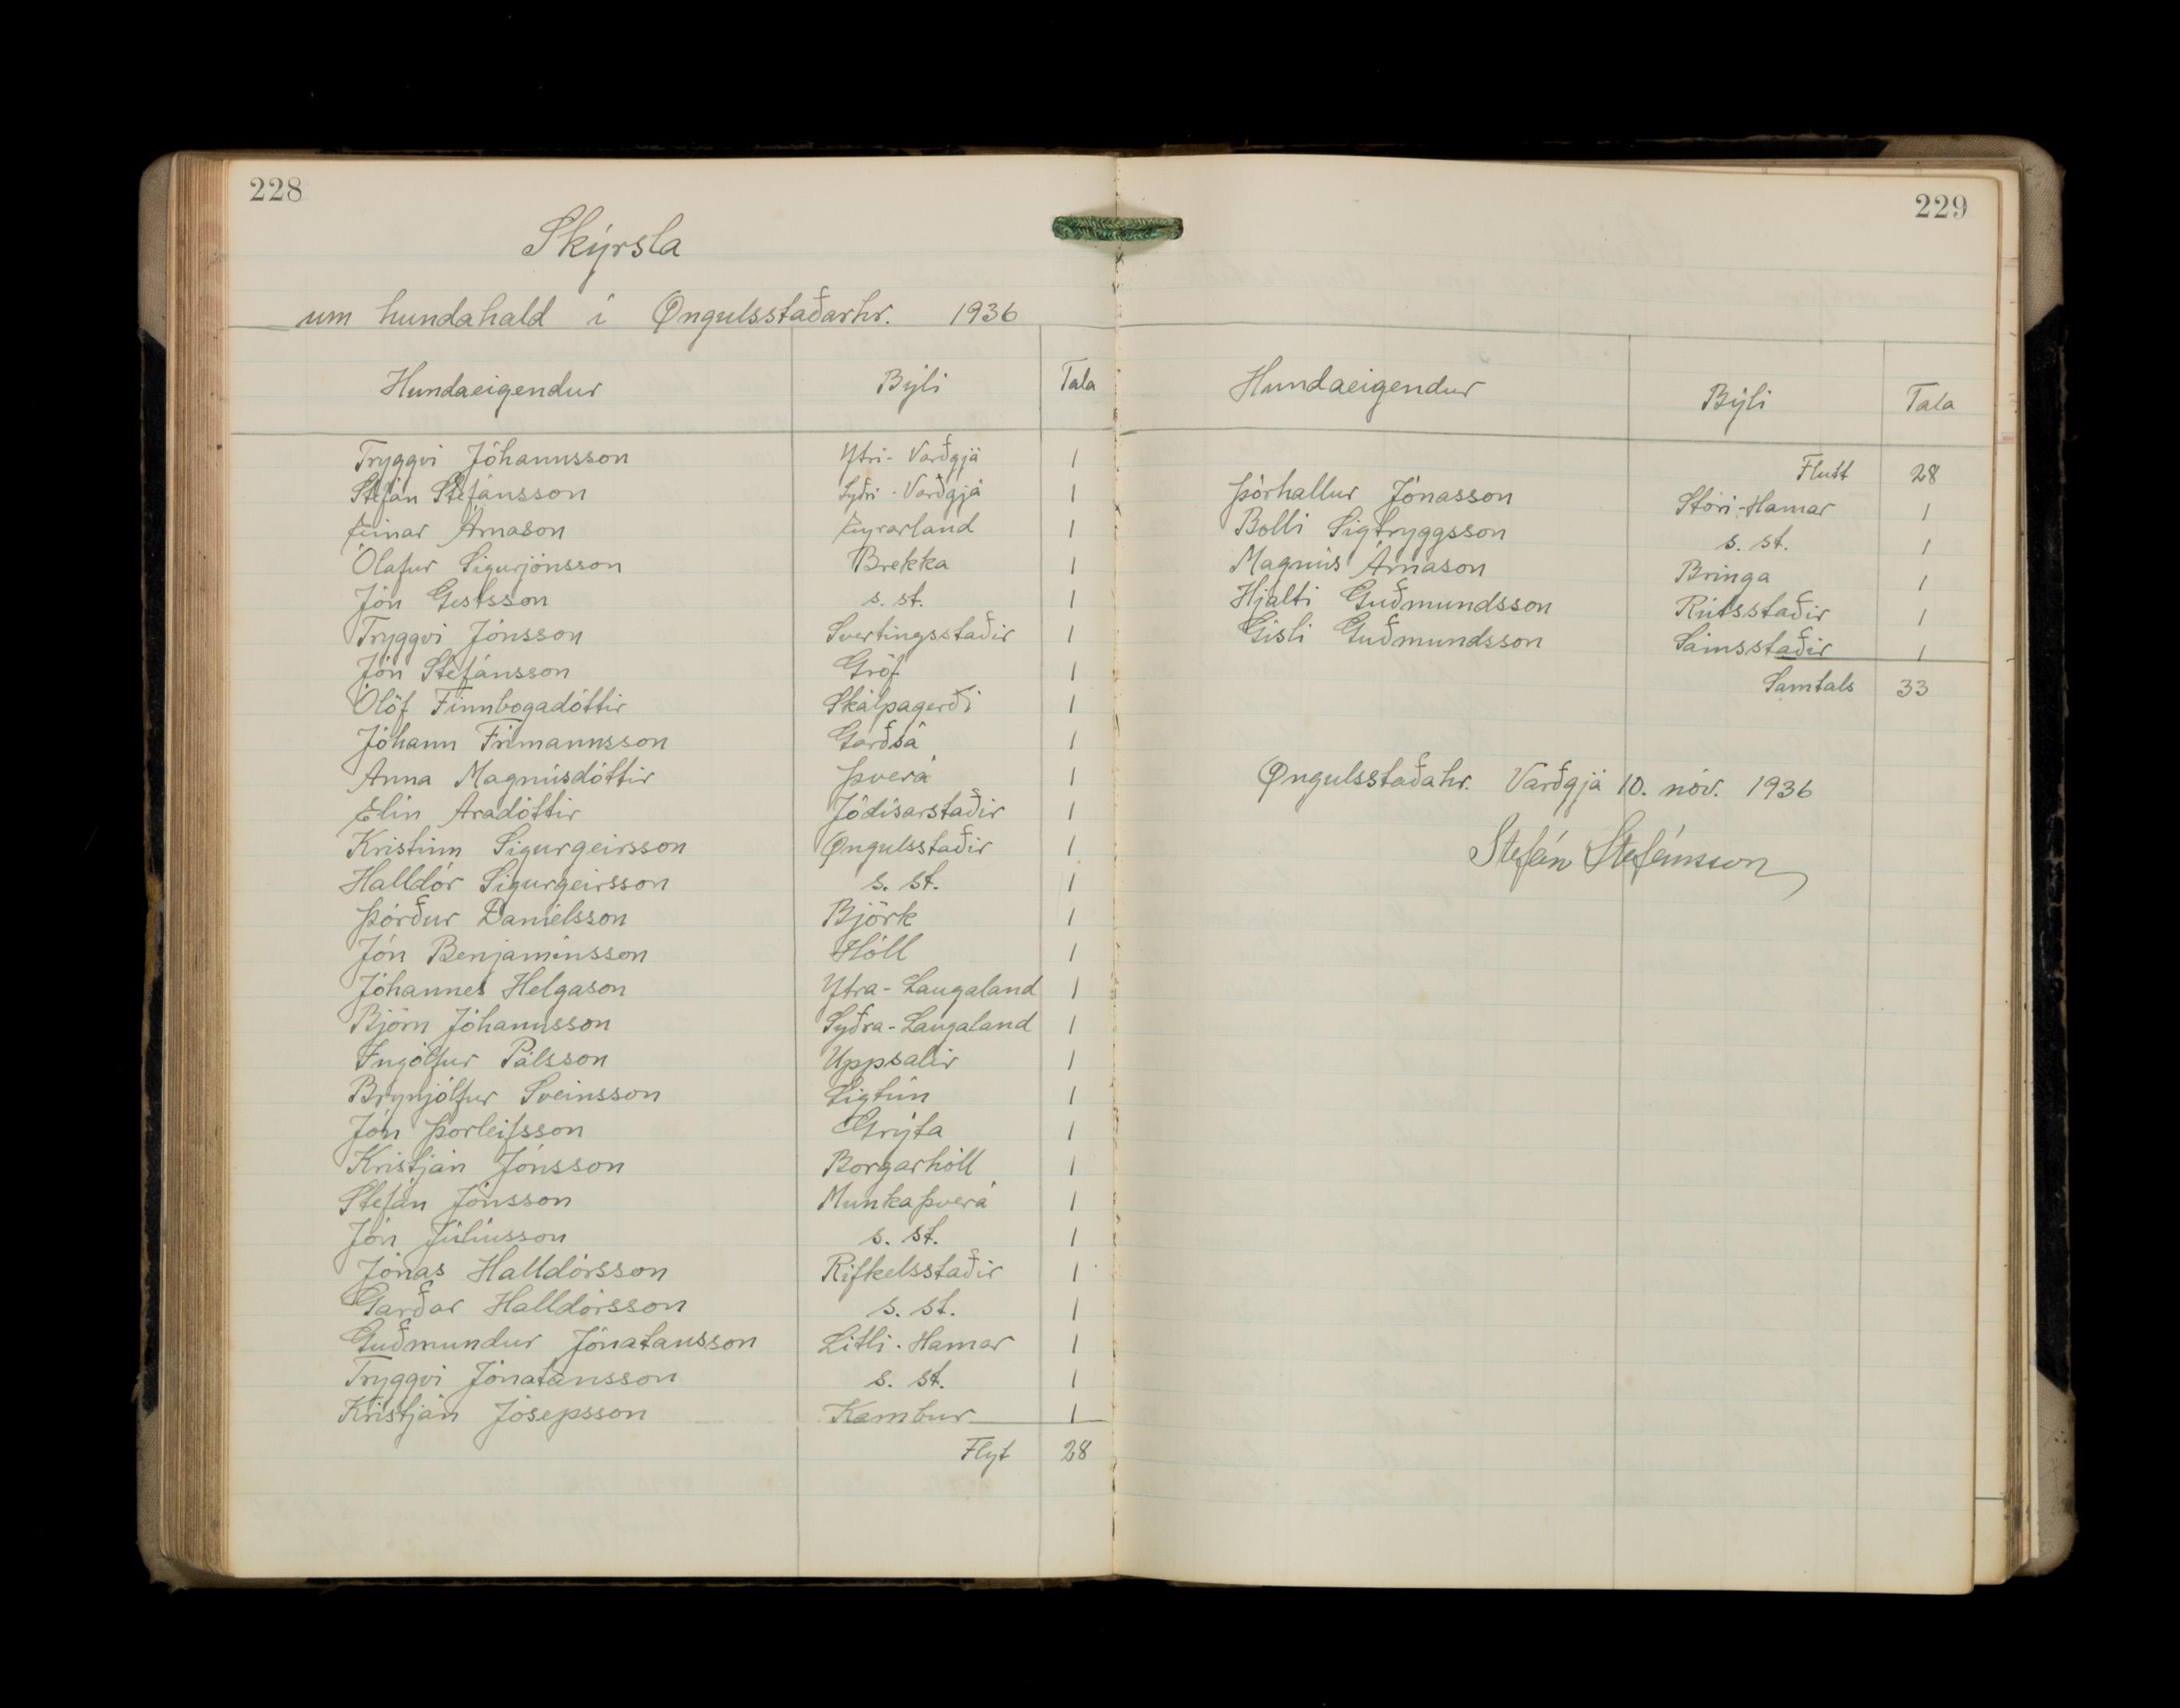 228
Skýrsla
um hundahald í Øngulsstaðarhr. 1936
Hundaeigendur Býli Tala
Tryggvi Jóhannsson Ytri-Varðgjá 1
Stefán Stefánsson Syðri-Varðgjá 1
Einar Árnason Eyrarland 1
Ólafur Sigurjónsson Brekka 1
Jón Gestsson s. st. 1
Tryggvi Jónsson Svertingsstaðir 1
Jón Stefánsson Gröf 1
Ólöf Finnbogadóttir Skálpagerði 1
Jóhann Frimannsson Garðsá 1
Anna Magnúsdóttir Þverá 1
Elín Aradóttir Jódísarstaðir 1
Kristinn Sigurgeirsson Øngulsstaðir 1
Halldór Sigurgeirsson s. st. 1
Þórður Daníelsson Björk 1
Jón Benjamínsson Hóll 1
Jóhannes Helgason Ytra-Laugaland 1
Björn Jóhannsson Syðra-Laugaland 1
Ingólfur Pálsson Uppsalir 1
Brynjólfur Sveinsson Sigtún 1
Jón Þorleifsson Grýta 1
Kristján Jónsson Borgarhóll 1
Stefán Jónsson Munkaþverá 1
Jón Júlíusson s. st. 1
Jónas Halldórsson Rifkelsstaðir 1
Garðar Halldórsson s. st. 1
Guðmundur Jónatansson Litli-Hamar 1
Tryggvi Jónatansson s. st. 1
Kristján Jósepsson Kambur 1
Flyt 28
229
Hundaeigendur Býli Tala
Flutt 28
Þórhallur Jónasson Stóri-Hamar 1
Bolli Sigtryggsson s. st. 1
Magnús Árnason Bringa 1
Hjalti Guðmundsson Rútsstaðir 1
Gísli Guðmundsson Sámsstaðir 1
Samtals 33
Øngulsstaðahr. Varðgjá 10. nóv. 1936
Stefán Stefánsson